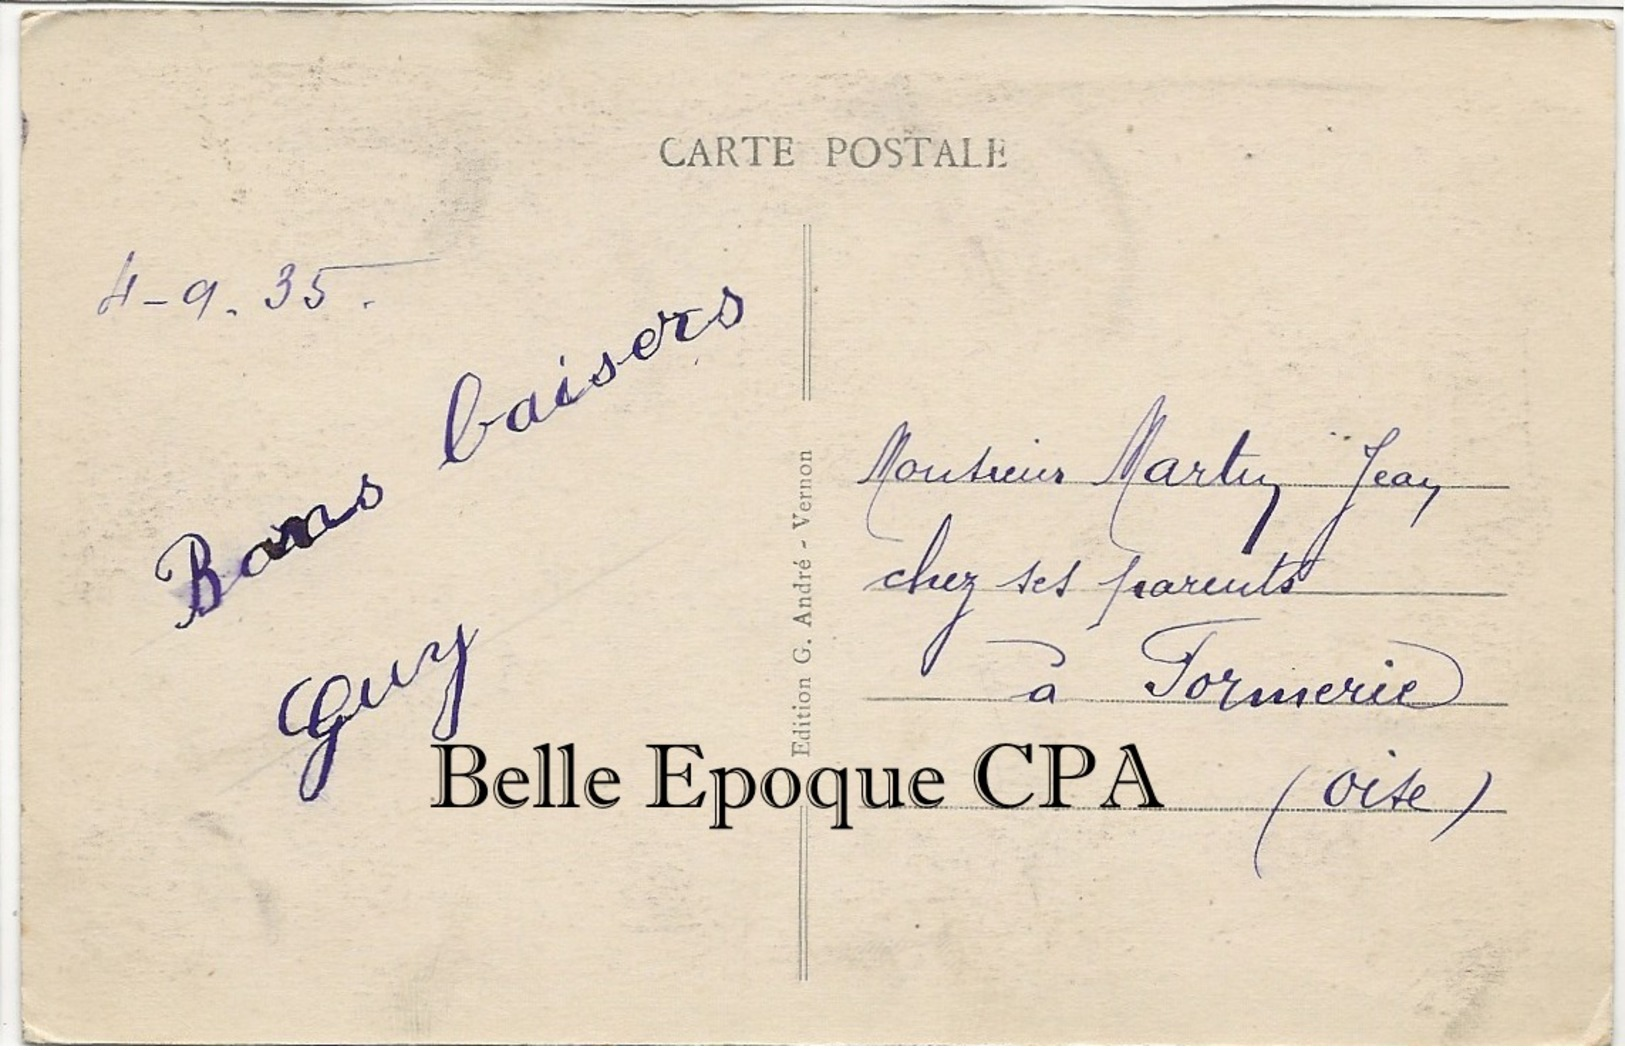 CARTE POSTALE
4-9.35.
Bons baisers
Guy
Edition G. André - Vernon
Monsieur Martin Jean
chez ses parents
à Formerie
(Oise)
Belle Epoque CPA